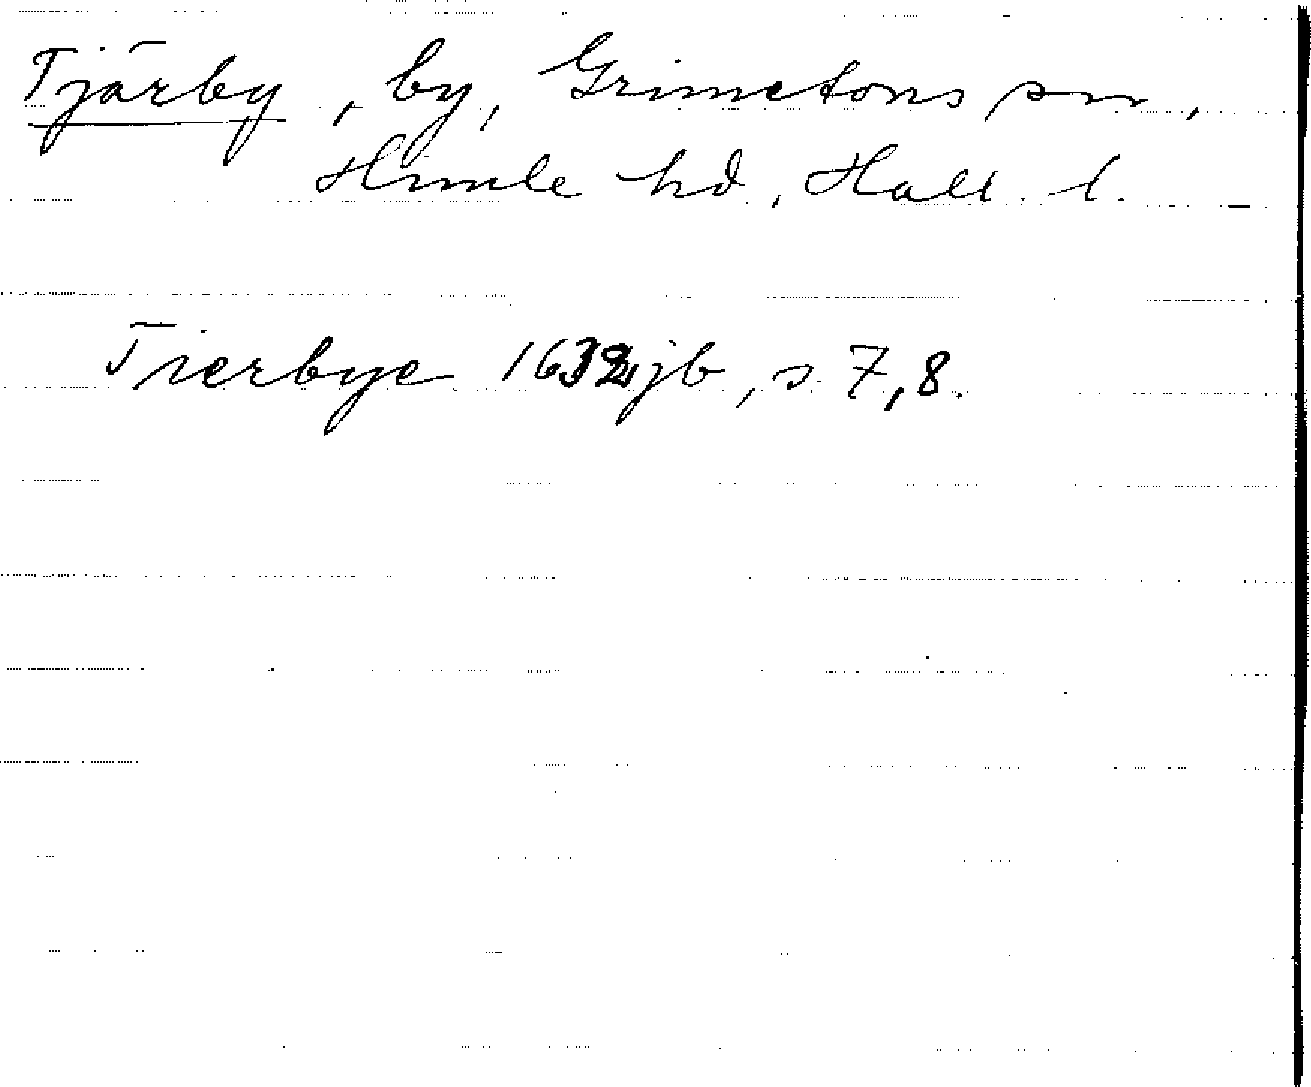 Tjärby, by, Grimetons sn,
Himle hd, Hall. l.
Tierbye 1632 jb, s. 7, 8.